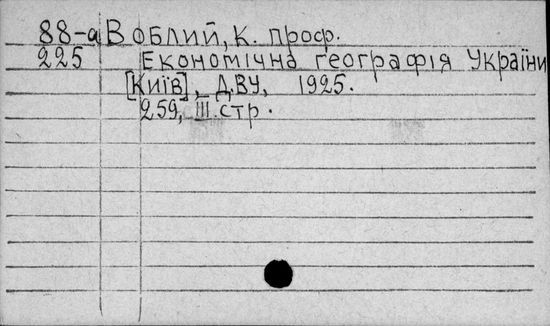 88-а Воблий, К. проф.
225 Економічна географія України
[Київ], ДВУ, 1925.
259, III стр.